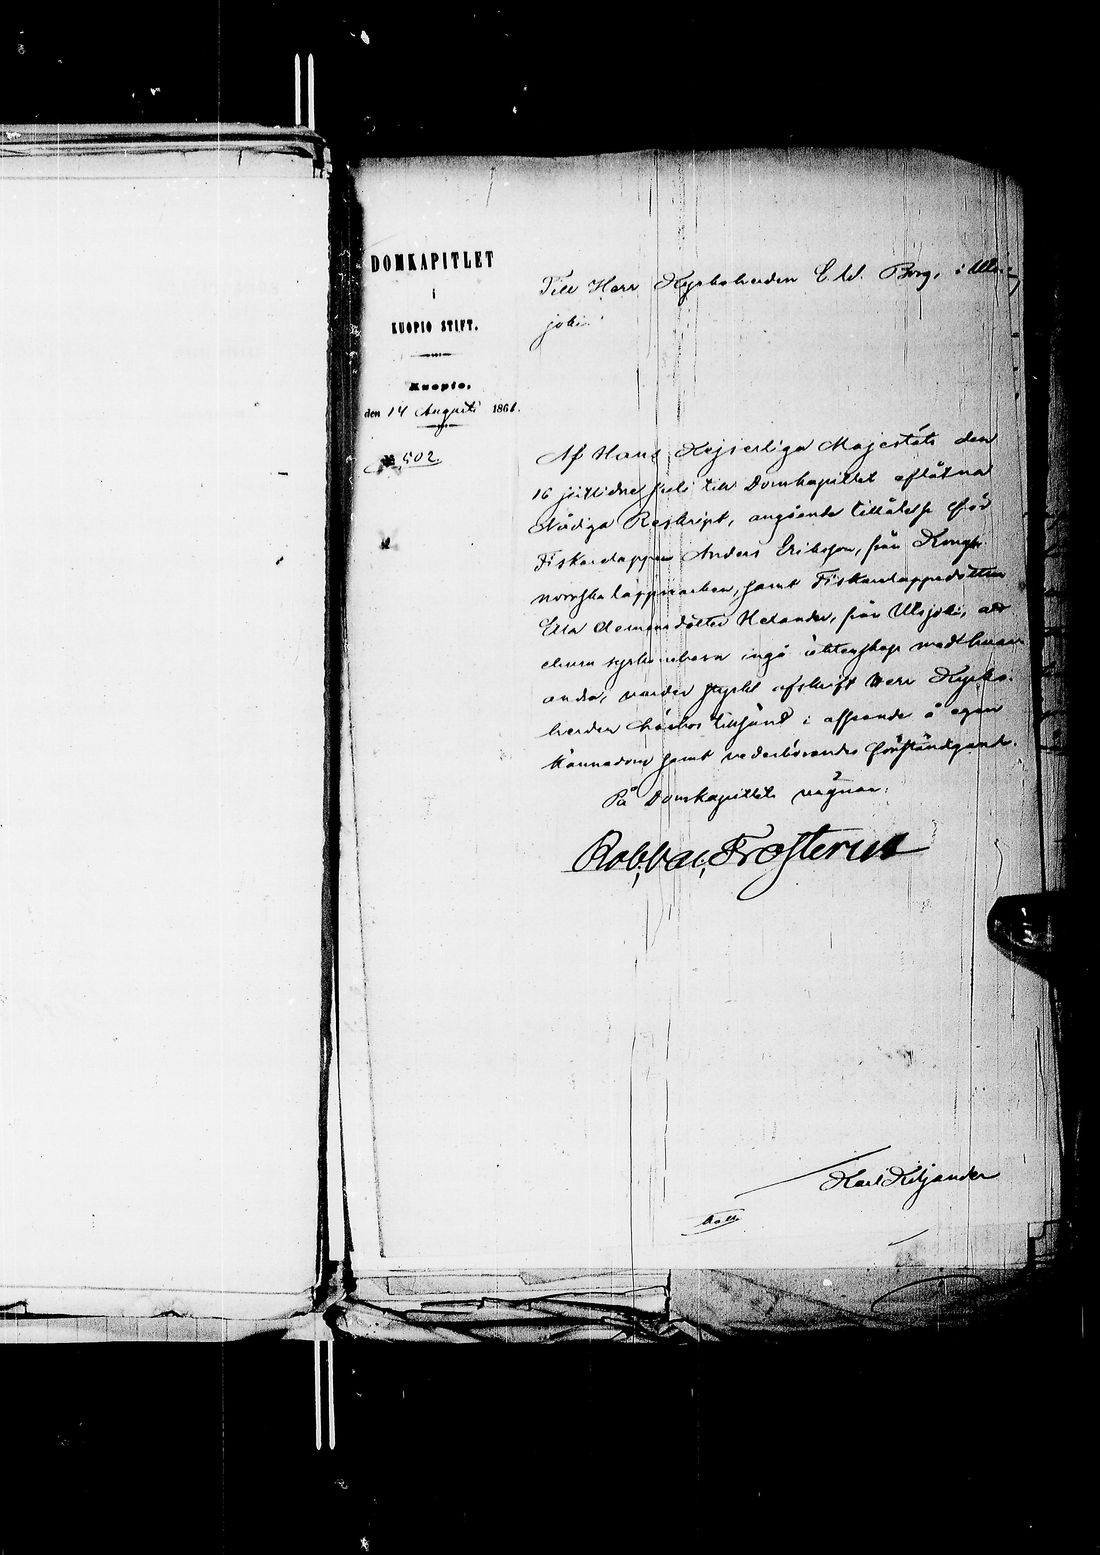 DOMKAPITLET
i
KUOPIO STIFT.
Kuopio,
den 14 Augusti 1861.
№ 502.
Till Herr Kyrkoherden E. W. Borg, i Uts-
joki.
Af Hans Kejserliga Majestäts den
16 sistlidne Juli till Domkapitlet aflåtna
Nådiga Reskript, angående tillåtelse för
Fiskarelappen Anders Eriksson, från Kongl.
norrska lappmarken, samt Fiskarelappedottren
Ella Clemensdotter Helander, från Utsjoki, att
såsom syskonebarn ingå äktenskap med hvar-
andra, varder tryckt afskrift Herr Kyrko-
herden härhos tillsänd i afseende å egen
kännedom samt vederbörandes förständigande.
På Domkapitlets vägnar:
Robert Frosterus
Karl Kiljander